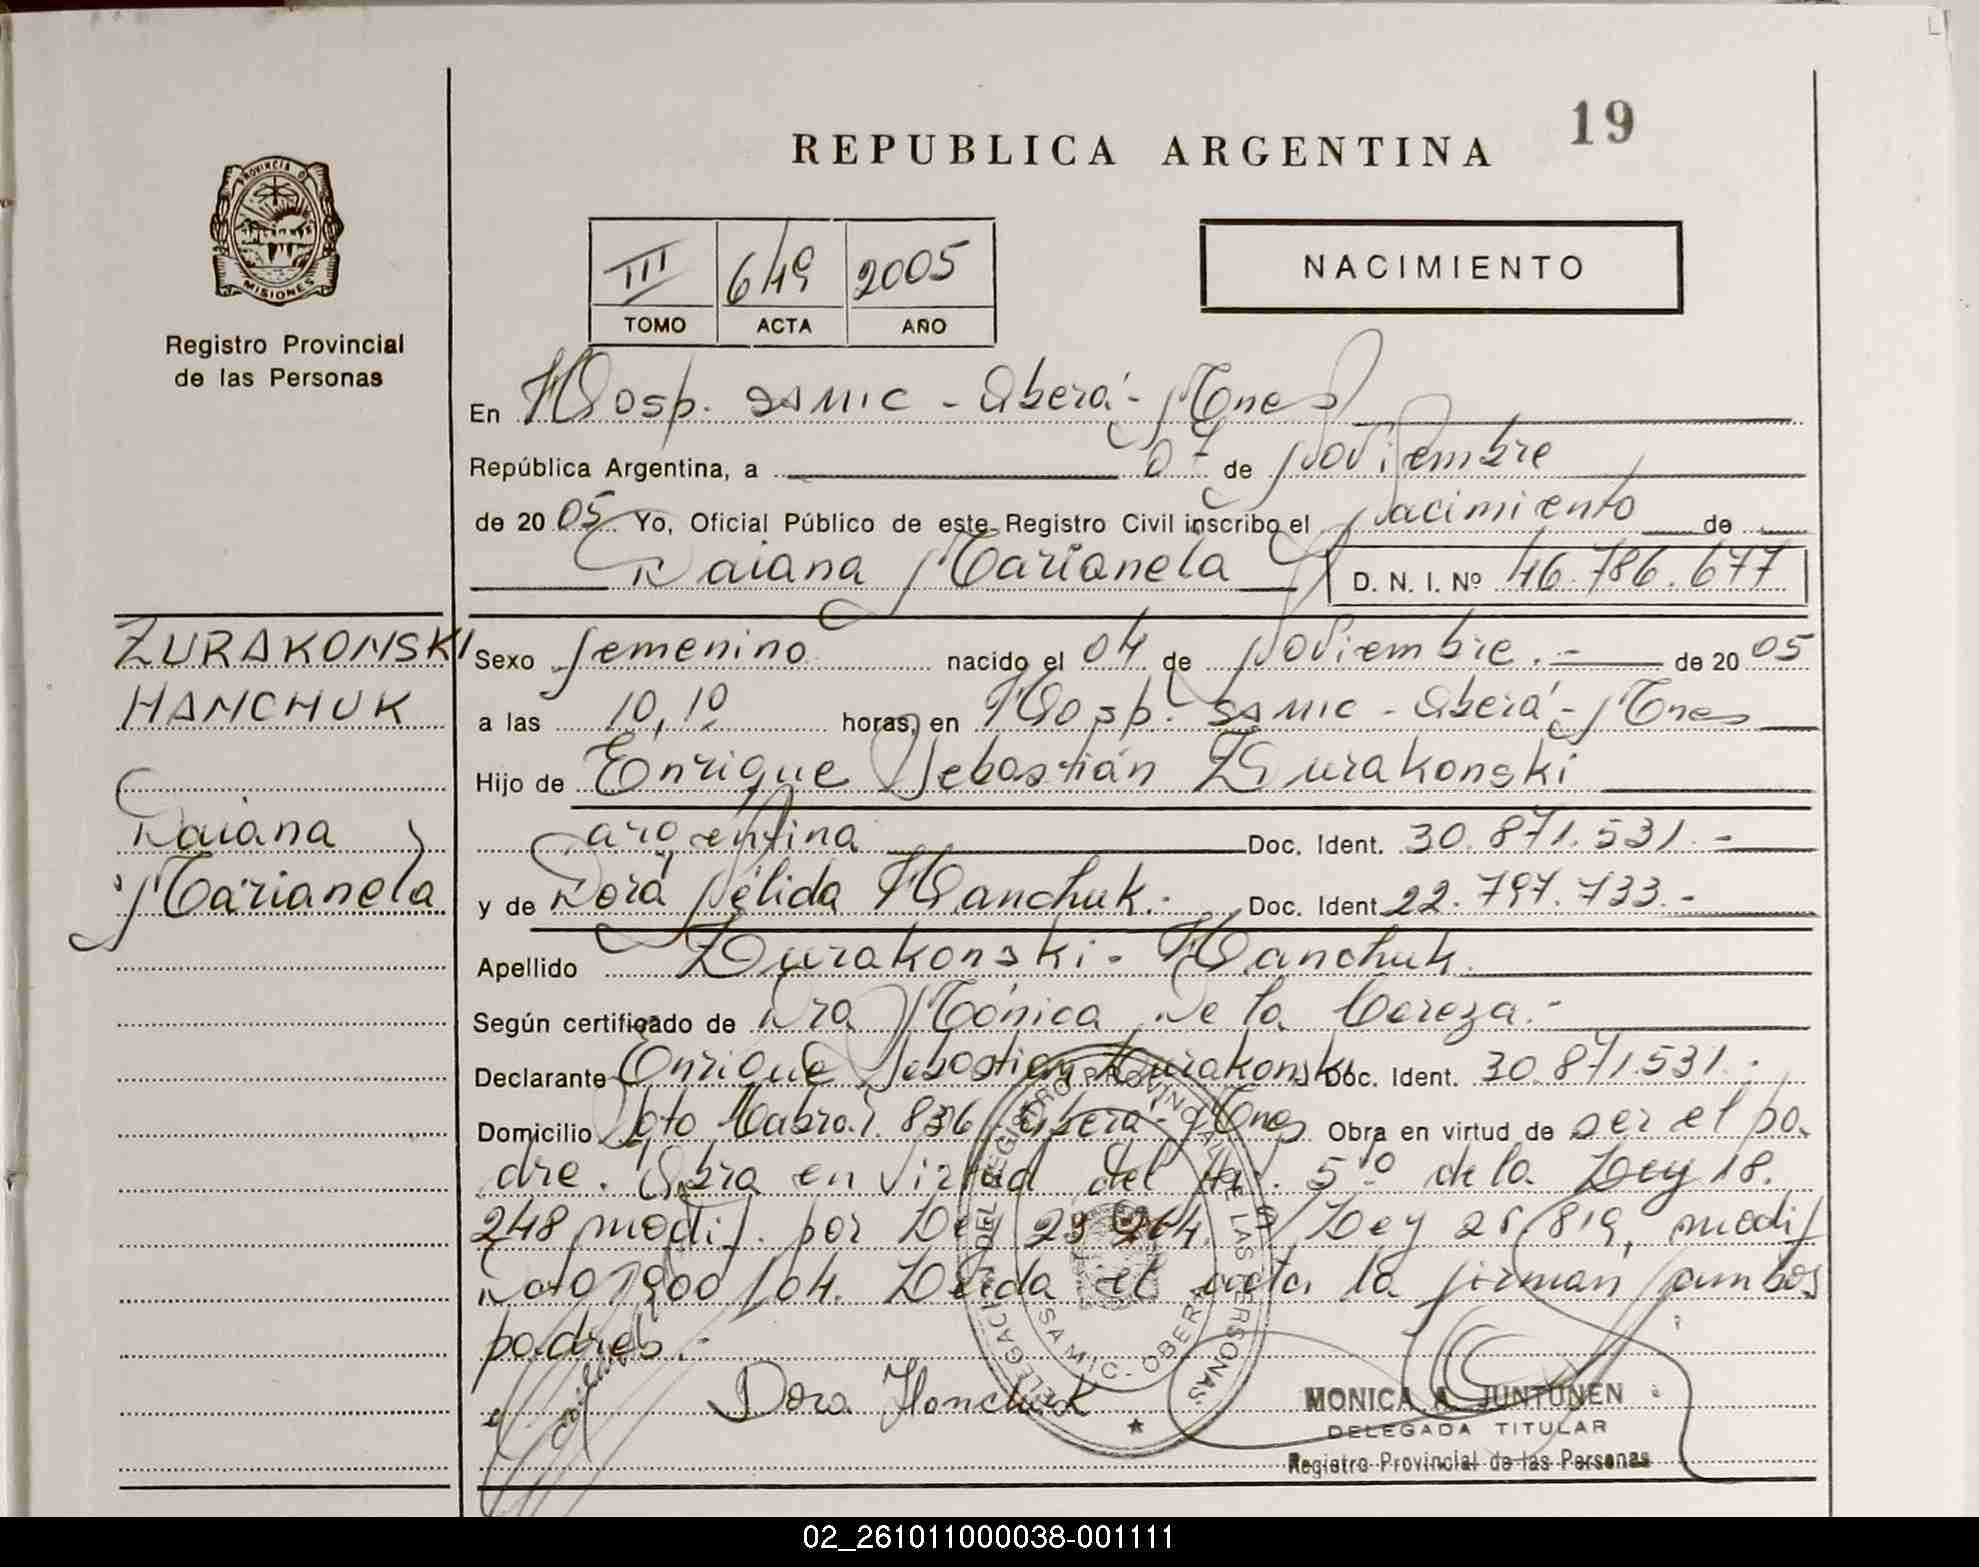 19
REPUBLICA ARGENTINA
PROVINCIA D
MISIONES
Registro Provincial
de las Personas
III 649 2005
TOMO ACTA AÑO
NACIMIENTO
En Hosp. SAMIC - Oberá - Mnes
República Argentina, a 07 de Noviembre
de 2005 Yo, Oficial Público de este Registro Civil inscribo el Nacimiento de
Daiana Marianela D. N. I. Nº 46.786.677
ZURAKONSKI
HANCHUK
Daiana
Marianela
Sexo femenino nacido el 04 de Noviembre.- de 2005
a las 10,10 horas, en Hosp. SAMIC - Oberá - Mnes
Hijo de Enrique Sebastián Zurakonski
argentina Doc. Ident. 30.871.531.-
y de Dora Nélida Hanchuk.- Doc. Ident 22.797.733.-
Apellido Zurakonski - Hanchuk.
Según certificado de Dra Mónica De la Cereza.-
Declarante Enrique Sebastian Zurakonski Doc. Ident. 30.871.531.-
Domicilio Sgto Cabral 836 Oberá - Mnes Obra en virtud de ser el pa
dre. Obra en virtud del Art. 5to de la Ley 18.
248 modif. por Ley 23.264. S/Ley 25.819, modif
Dcto 1900/04. Leida el acta la firman ambos
padres.-
Dora Hanchuk
DELEGACION DEL REGISTRO PROVINCIAL DE LAS PERSONAS
SAMIC. OBERA
MONICA A. JUNTUNEN
DELEGADA TITULAR
Registro Provincial de las Personas
02_261011000038-001111